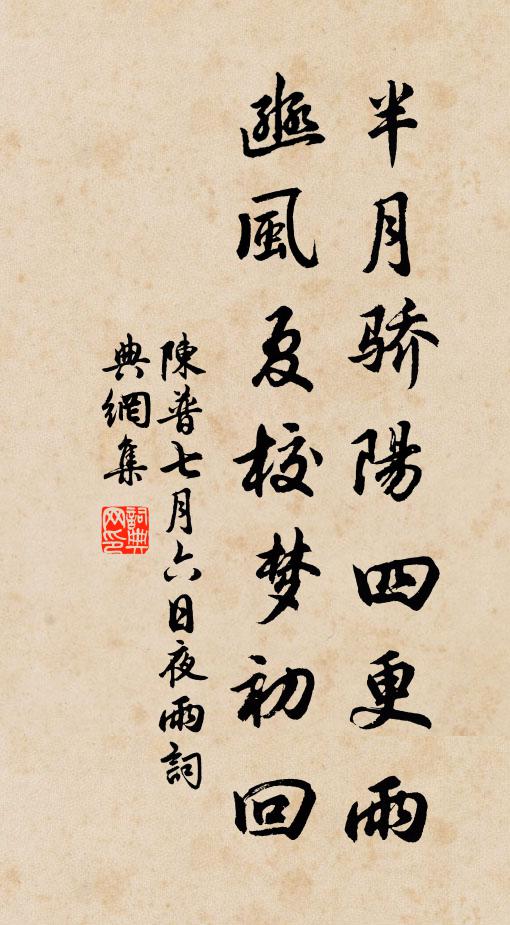 半月骄陽四更雨
豳風夏校梦初回
陳普七月六日夜雨詞
典網集
詞典
网印